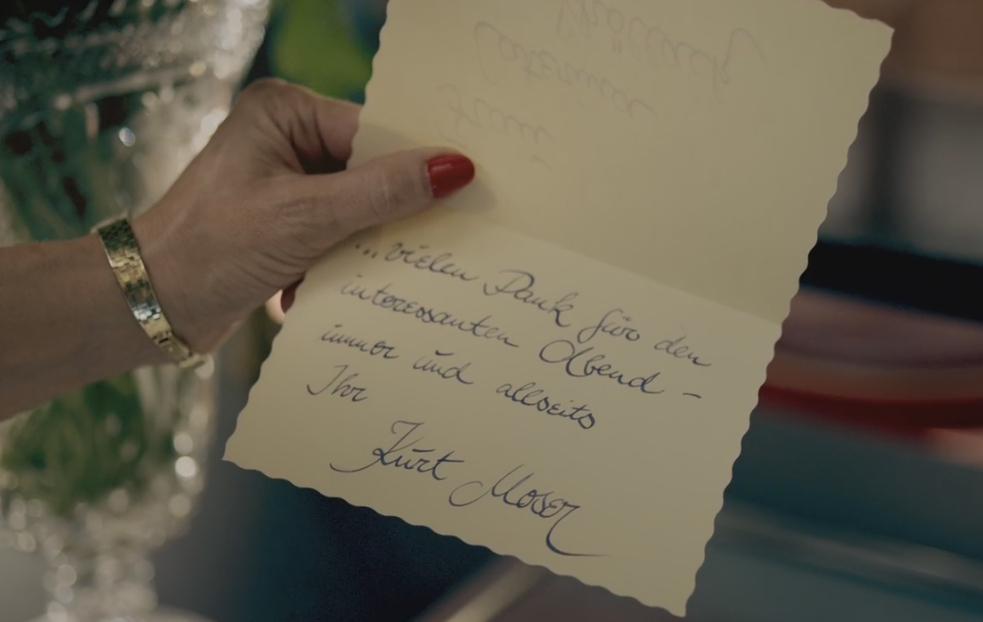 ...vielen Dank fürs den
interessanten Abend -
immer und allseits
Ihr
Kurt Moser